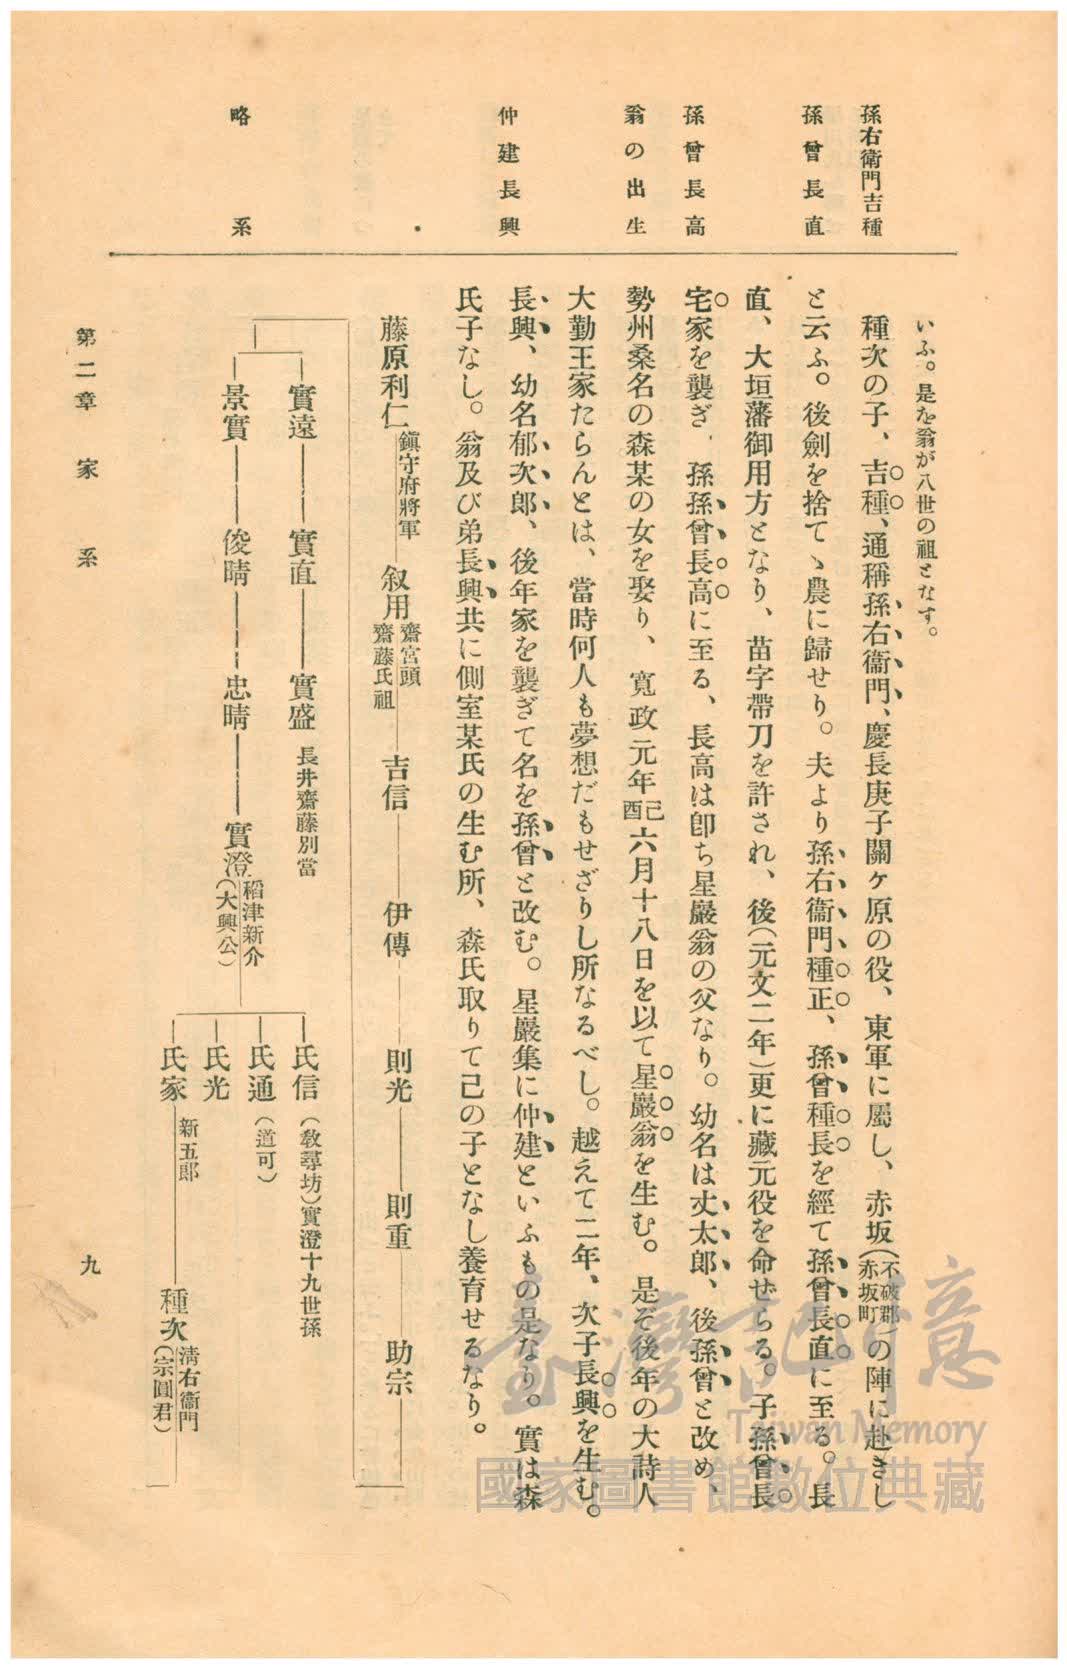 孫右衞門吉種
孫曾長直
孫曾長高
翁の出生
仲建長興
略系
いふ。是を翁が八世の祖となす。
種次の子、吉種、通稱孫右衞門、慶長庚子關ヶ原の役、東軍に屬し、赤坂(不破郡赤坂町)の陣に赴きし
と云ふ。後劍を捨てゝ農に歸せり。夫より孫右衞門種正、孫曾種長を經て孫曾長直に至る。長
直、大垣藩御用方となり、苗字帶刀を許され、後(元文二年)更に藏元役を命せらる。子孫曾長
宅家を襲ぎ、孫孫曾長高に至る、長高は卽ち星巖翁の父なり。幼名は丈太郎、後孫曾と改め、
勢州桑名の森某の女を娶り、寬政元年己酉六月十八日を以て星巖翁を生む。是ぞ後年の大詩人
大勤王家たらんとは、當時何人も夢想だもせざりし所なるべし。越えて二年、次子長興を生む。
長興、幼名郁次郎、後年家を襲ぎて名を孫曾と改む。星巖集に仲建といふもの是なり。實は森
氏子なし。翁及び弟長興共に側室某氏の生む所、森氏取りて己の子となし養育せるなり。
藤原利仁 鎭守府將軍 叙用 齋宮頭 齋藤氏祖 吉信 伊傳 則光 則重 助宗
實遠 實直 實盛 長井齋藤別當
景實 俊晴 忠晴 實澄 稻津新介 (大興公)
氏信 (敎尋坊)實澄十九世孫
氏通 (道可)
氏光
氏家 新五郎 種次 淸右衞門 (宗圓君)
第二章 家系
九
臺灣記憶
Taiwan Memory
國家圖書館數位典藏